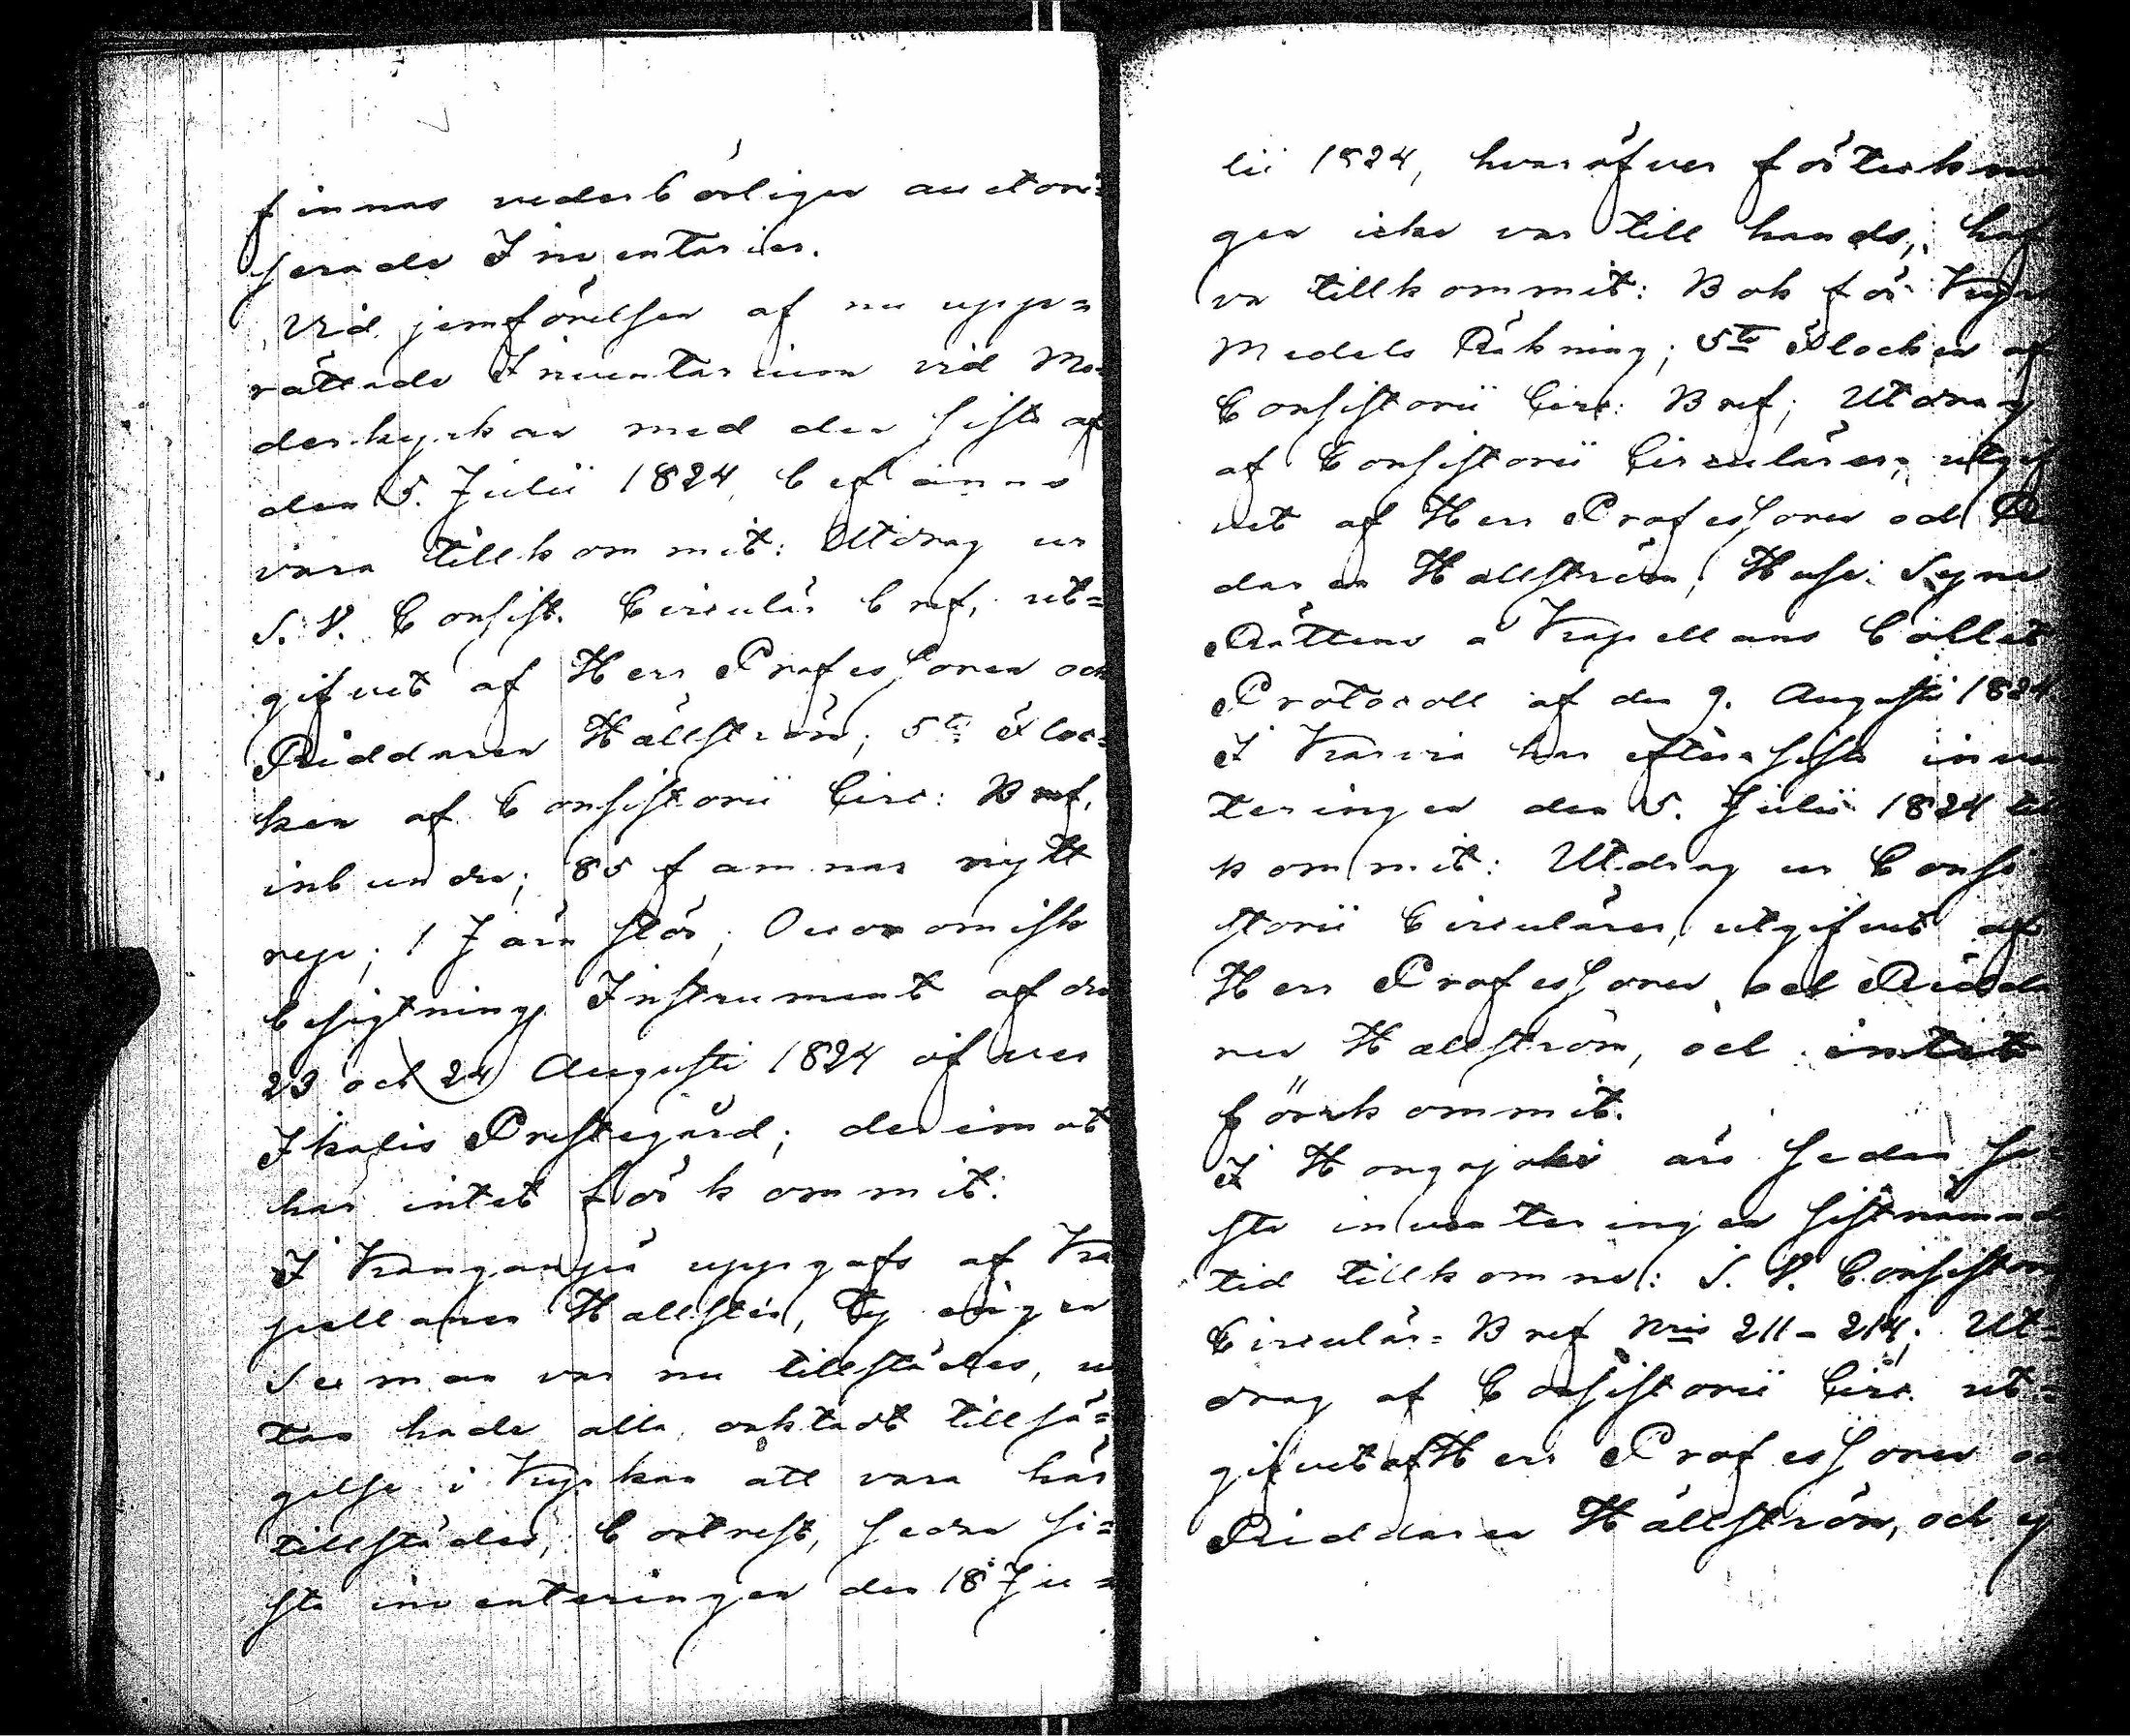 finnas vederbörligen auctori=
serade Inventarier.
Vid jemförelsen af nu upp=
rättade Inventarium vid Mo=
derkyrkan med den sista af
den 5. Julii 1824, befanns
vara tillkommit: Utdrag ur
S. V. Consist. Circulär bref, ut=
gifvet af Herr Professoren och
Riddaren Hällström; 5te Floc=
ken af Consistorii Circ: Bref,
inbunden; 85 famnar nytt
rep; 1 Järn stör; Oeconomisk
besigtnings Instrument af den
23 och 24 Augusti 1824 öfver
Ikalis Prestegård; deremot
har intet förkommit.
I Kanganpä uppgafs af Ka
pellanen Hallstén, Ty ingen
Sexman var nu tillstädes, u
tan hade alla, oaktadt tillsä=
gelse i Kyrkan att vara här
tillstädes, bortrest, sedan si=
sta inventeringen den 18 Ju=
lii 1824, hvaröfver förteckni
gen icke var till hands, haf
va tillkommit: Bok för Kyrk
Medels Räkning; 5te Flocken af
Consistorii Circ: Bref; Utdrag
af Consistorii Circulärer, utgif
vet af Herr Professoren och Ri
daren Hällström; Huse Syne
Rättens å Kapellans Bohlet
Protocoll af den 9. Augusti 1824
I Karvia har efter sista inven
teringen den 5. Julii 1824 till
kommit: Utdrag ur Consi
storii Circulärer, utgifvet af
Herr Professoren och Ridda
ren Hällström, och intet
förkommit.
I Hongojoki äro sedan si=
sta inventeringen sistnämnd
tid tillkomne: S. V. Consistorii
Circulär= Bref Nris 211-214; Ut=
drag af Consistorii Circ. ut=
gifvet af Herr Professoren och
Riddaren Hällström, och ej